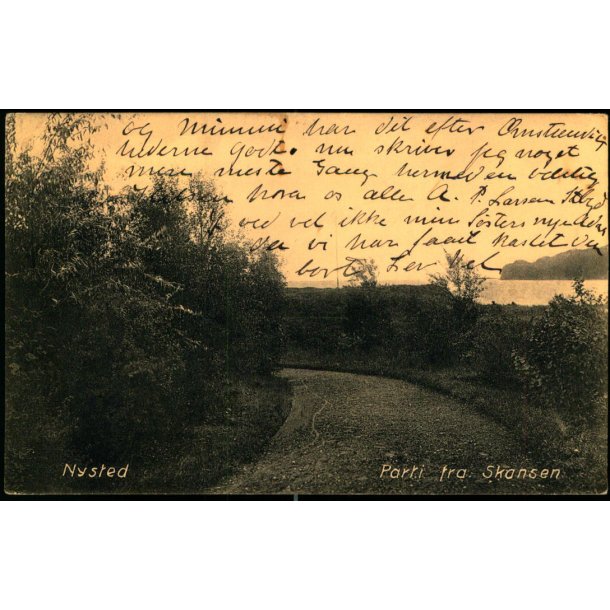 og mimmi har det efter Omstændig
hederne godt. nu skriver jeg noget
mere neste Gang hermed en venlig
Hilsen fra os alle A. P. Larsen
ved vel ikke min Søsters
da vi har faaet kastet den
bort Lev vel
Nysted
Parti fra Skansen